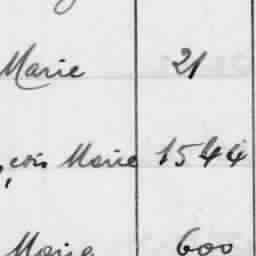 Marie 21
çois Marie 1544
Marie 600